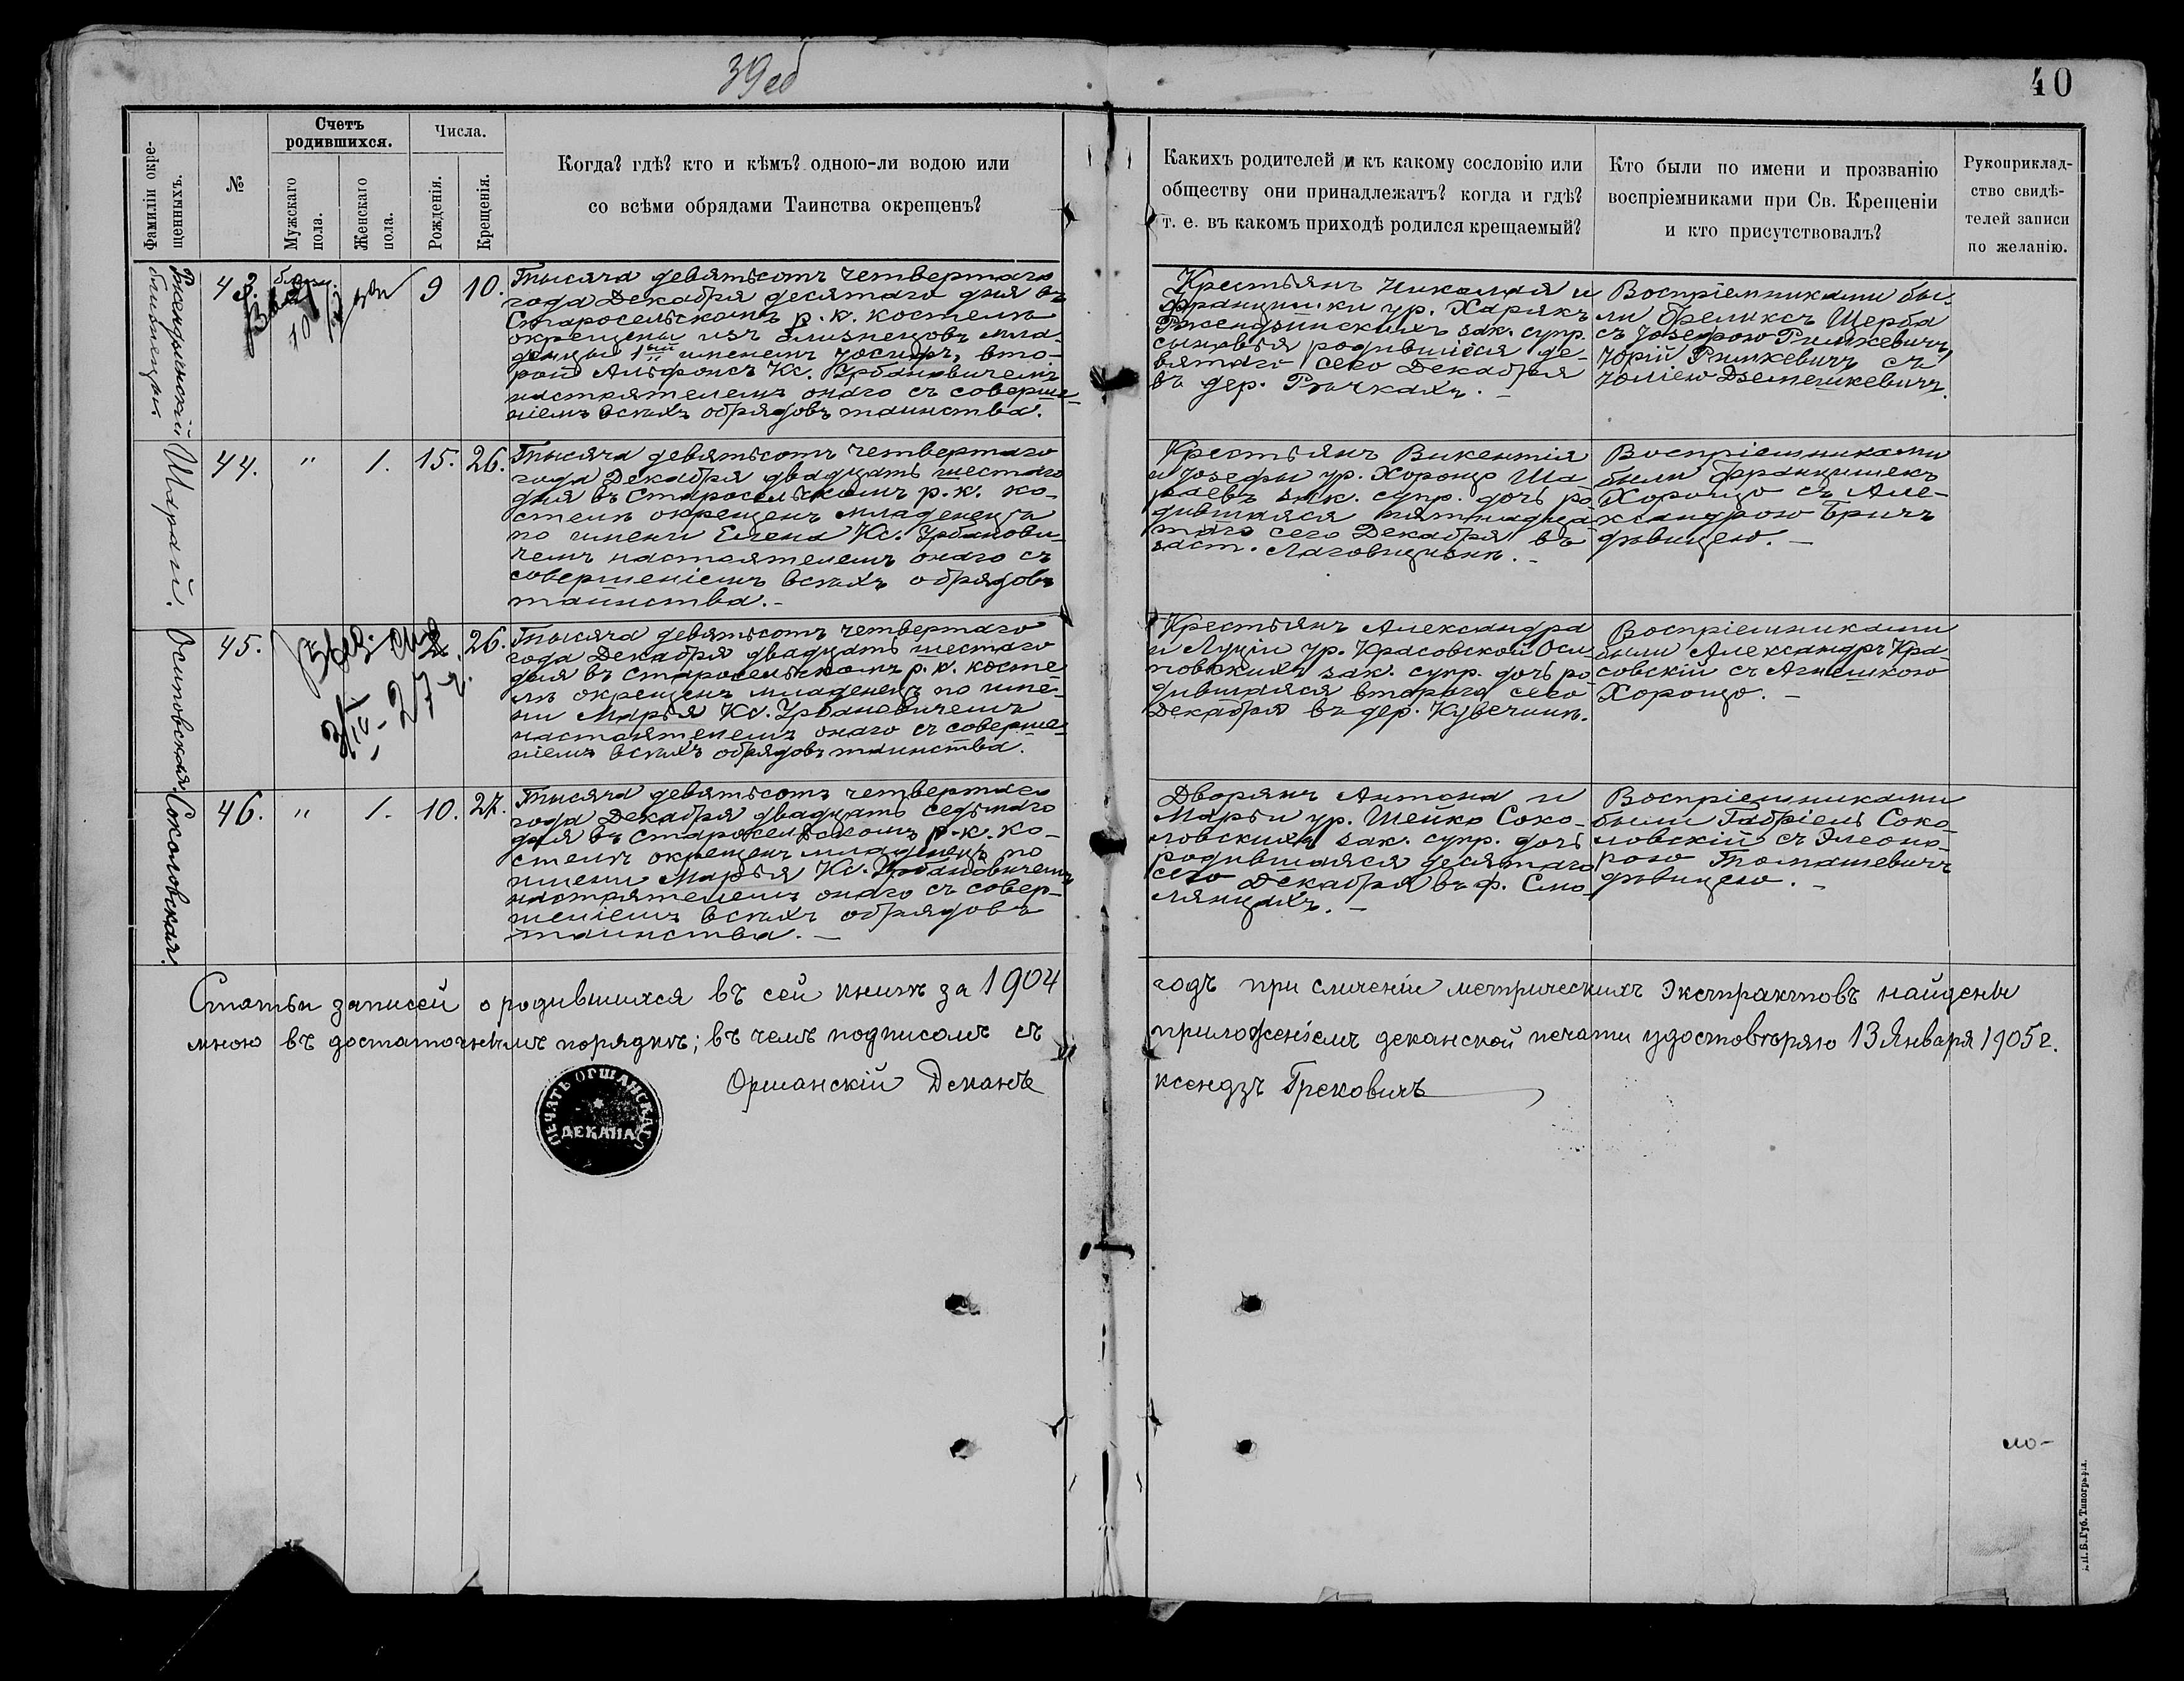 39об
40
Фамиліи окре-
щенныхъ.
№
Счетъ
родившихся.
Мужскаго
пола.
Женскаго
пола.
Числа.
Рожденія.
Крещенія.
Когда? гдѣ? кто и кѣмъ? одною-ли водою или
со всѣми обрядами Таинства окрещенъ?
Какихъ родителей и къ какому сословію или
обществу они принадлежатъ? когда и гдѣ?
т. е. въ какомъ приходѣ родился крещаемый?
Кто были по имени и прозванію
воспріемниками при Св. Крещеніи
и кто присутствовалъ?
Рукоприклад-
ство свидѣ-
телей записи
по желанію.
близнецы.
43.
9
10.
Тысяча девятьсотъ четвертаго
года Декабря десятаго дня въ
Старосельскомъ р. к. костелѣ
окрещены изъ близнецовъ мла-
денцы 1ый именемъ Іосифъ, вто-
рой Альфонсъ Кс. Урбановичемъ
настоятелемъ онаго съ соверше-
ніемъ всѣхъ обрядовъ таинства.
Крестьянъ Николая и
Францишки ур. Харякъ
зак. супр.
сыновья родившіеся де-
вятаго сего Декабря
въ дер. Рѣчкахъ. -
Воспріемниками бы-
ли Феликсъ Щерба
съ Іозефою Рышкевичъ
Юрій Рышкевичъ съ
Юліею Дземешкевичъ.
Шарай.
44.
"
1.
15.
26.
Тысяча девятьсотъ четвертаго
года Декабря двадцать шестаго
дня въ Старосельскомъ р. к. ко-
стелѣ окрещенъ младенецъ
по имени Елена Кс. Урбанови-
чемъ настоятелемъ онаго съ
совершеніемъ всѣхъ обрядовъ
таинства. -
Крестьянъ Викентія
и Іозефы ур. Хороцо Ша-
раевъ зак. супр. дочь ро
дившаяся пятнадца-
таго сего Декабря въ
заст. -
Воспріемниками
были Францишекъ
Хороцо съ Але-
ксандрою Бричъ
дѣвицею. -
Осиповская.
45.
2.
26.
Тысяча девятьсотъ четвертаго
года Декабря двадцать шестаго
дня въ Старосельскомъ р. к. косте-
лѣ окрещенъ младенецъ по име-
ни Марья Кс. Урбановичемъ
настоятелемъ онаго съ соверше-
ніемъ всѣхъ обрядовъ таинства.
Крестьянъ Александра
и Луціи ур. Красовской Оси-
повскихъ зак. супр. дочь ро-
дившаяся втораго сего
Декабря въ дер.
Воспріемниками
были Александръ Кра-
совскій съ Агнешкою
Хороцо. -
Соколовская.
46.
"
1.
10.
27.
Тысяча девятьсотъ четвертаго
года Декабря двадцать седьмаго
дня въ Старосельскомъ р. к. ко-
стелѣ окрещенъ младенецъ по
имени Марья Кс. Урбановичемъ
настоятелемъ онаго съ совер-
шеніемъ всѣхъ обрядовъ
таинства. -
Дворянъ Антона и
Марьи ур. Шейко Соко-
ловскихъ зак. супр. дочь
родившаяся десятаго
сего Декабря въ ф. Смо-
лянцахъ. -
Воспріемниками
были Габріель Соко-
ловскій съ Элеоно-
рою Томашевичъ
дѣвицею. -
Статьи записей о родившихся въ сей книгѣ за 1904 годъ при сличеніи метрическихъ экстрактовъ найдены
мною въ достаточнымъ порядкѣ; въ чемъ подписомъ съ приложеніемъ деканской печати удостовѣряю 13 Января 1905 г.
Оршанскій Деканъ ксендзъ Грековичъ
ПЕЧАТЬ ОРШАНСКАГО
ДЕКАНА
Губ. Типографія.